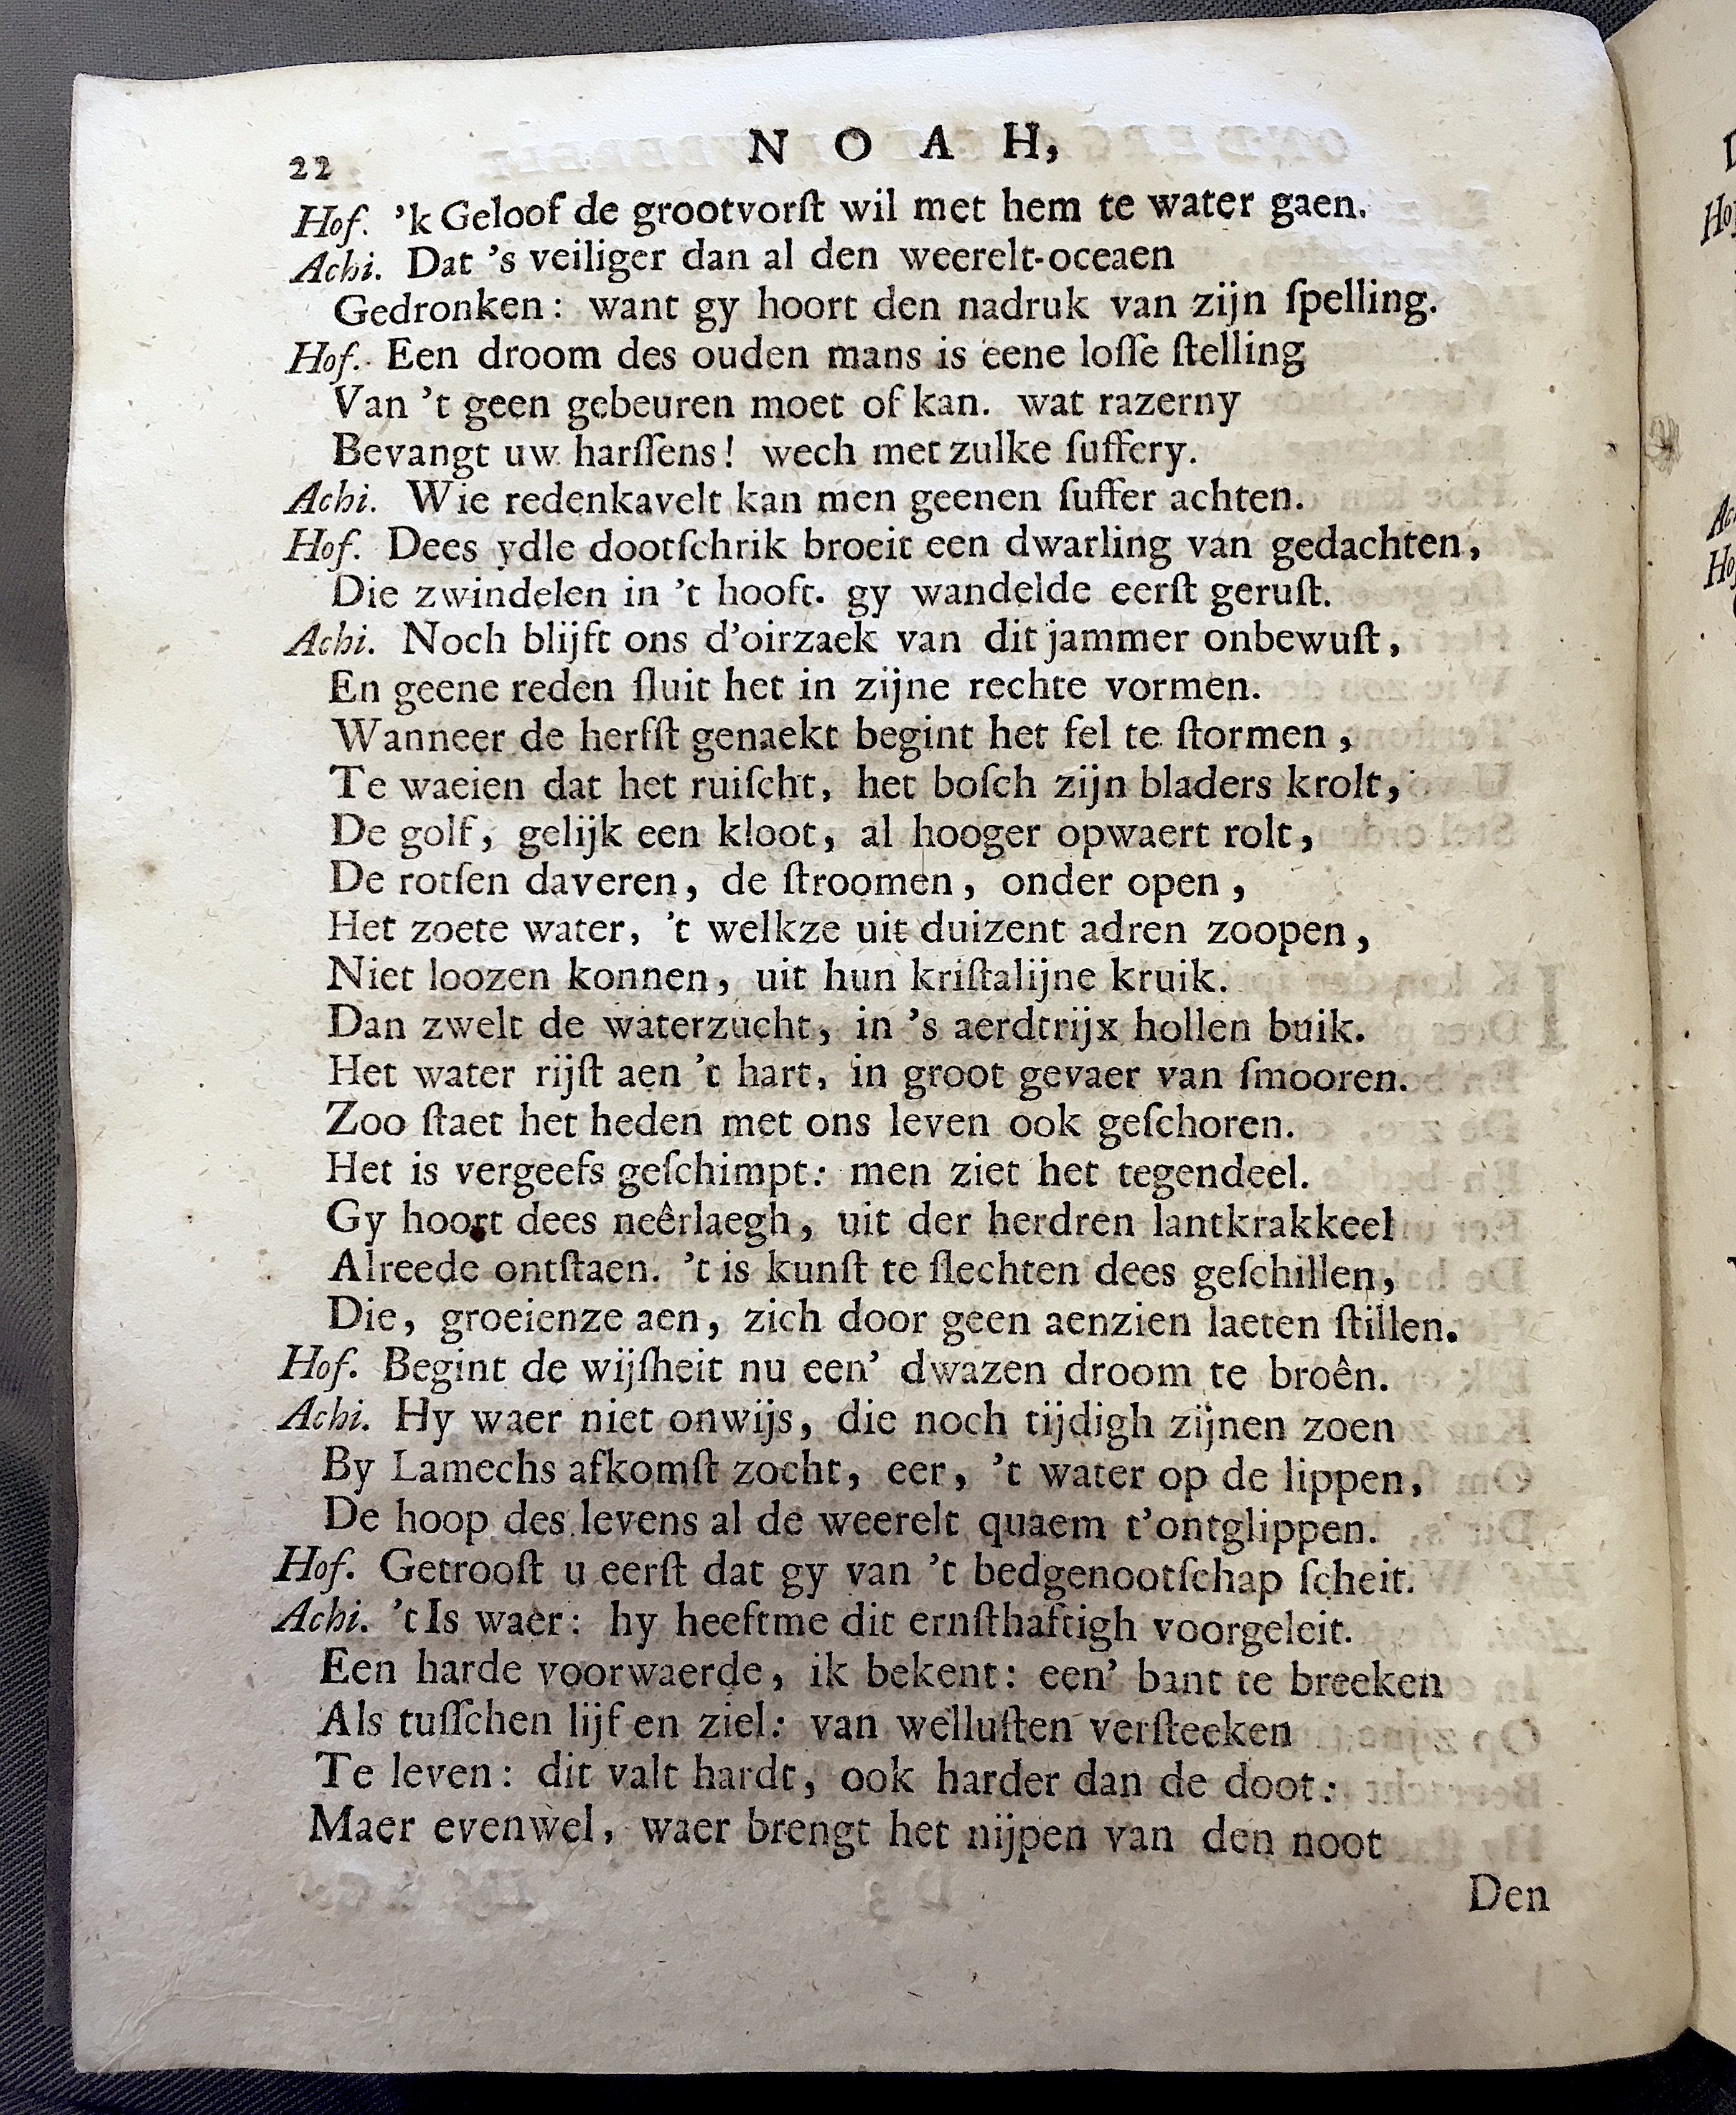 22 NOAH,
Hof. 'k Geloof de grootvorſt wil met hem te water gaen.
Achi. Dat 's veiliger dan al den weerelt-oceaen
Gedronken: want gy hoort den nadruk van zijn ſpelling.
Hof. Een droom des ouden mans is eene loſſe ſtelling
Van 't geen gebeuren moet of kan. wat razerny
Bevangt uw harſſens! wech met zulke ſuffery.
Achi. Wie redenkavelt kan men geenen ſuffer achten.
Hof. Dees ydle dootſchrik broeit een dwarling van gedachten,
Die zwindelen in 't hooft. gy wandelde eerſt geruſt.
Achi. Noch blijft ons d'oirzaek van dit jammer onbewuſt,
En geene reden ſluit het in zijne rechte vormen.
Wanneer de herfſt genaekt begint het fel te ſtormen,
Te waeien dat het ruiſcht, het boſch zijn bladers krolt,
De golf, gelijk een kloot, al hooger opwaert rolt,
De rotſen daveren, de ſtroomen, onder open,
Het zoete water, 't welkze uit duizent adren zoopen,
Niet loozen konnen, uit hun kriſtalijne kruik.
Dan zwelt de waterzucht, in 's aerdtrijx hollen buik.
Het water rijſt aen 't hart, in groot gevaer van ſmooren.
Zoo ſtaet het heden met ons leven ook geſchoren.
Het is vergeefs geſchimpt: men ziet het tegendeel.
Gy hoort dees neêrlaegh, uit der herdren lantkrakkeel
Alreede ontſtaen. 't is kunſt te ſlechten dees geſchillen,
Die, groeienze aen, zich door geen aenzien laeten ſtillen.
Hof. Begint de wijſheit nu een' dwazen droom te broên.
Achi. Hy waer niet onwijs, die noch tijdigh zijnen zoen
By Lamechs afkomſt zocht, eer, 't water op de lippen,
De hoop des levens al de weerelt quaem t'ontglippen.
Hof. Getrooſt u eerſt dat gy van 't bedgenootſchap ſcheit.
Achi. 't Is waer: hy heeftme dit ernſthaftigh voorgeleit.
Een harde voorwaerde, ik bekent: een' bant te breeken
Als tuſſchen lijf en ziel: van welluſten verſteeken
Te leven: dit valt hardt, ook harder dan de doot:
Maer evenwel, waer brengt het nijpen van den noot
Den